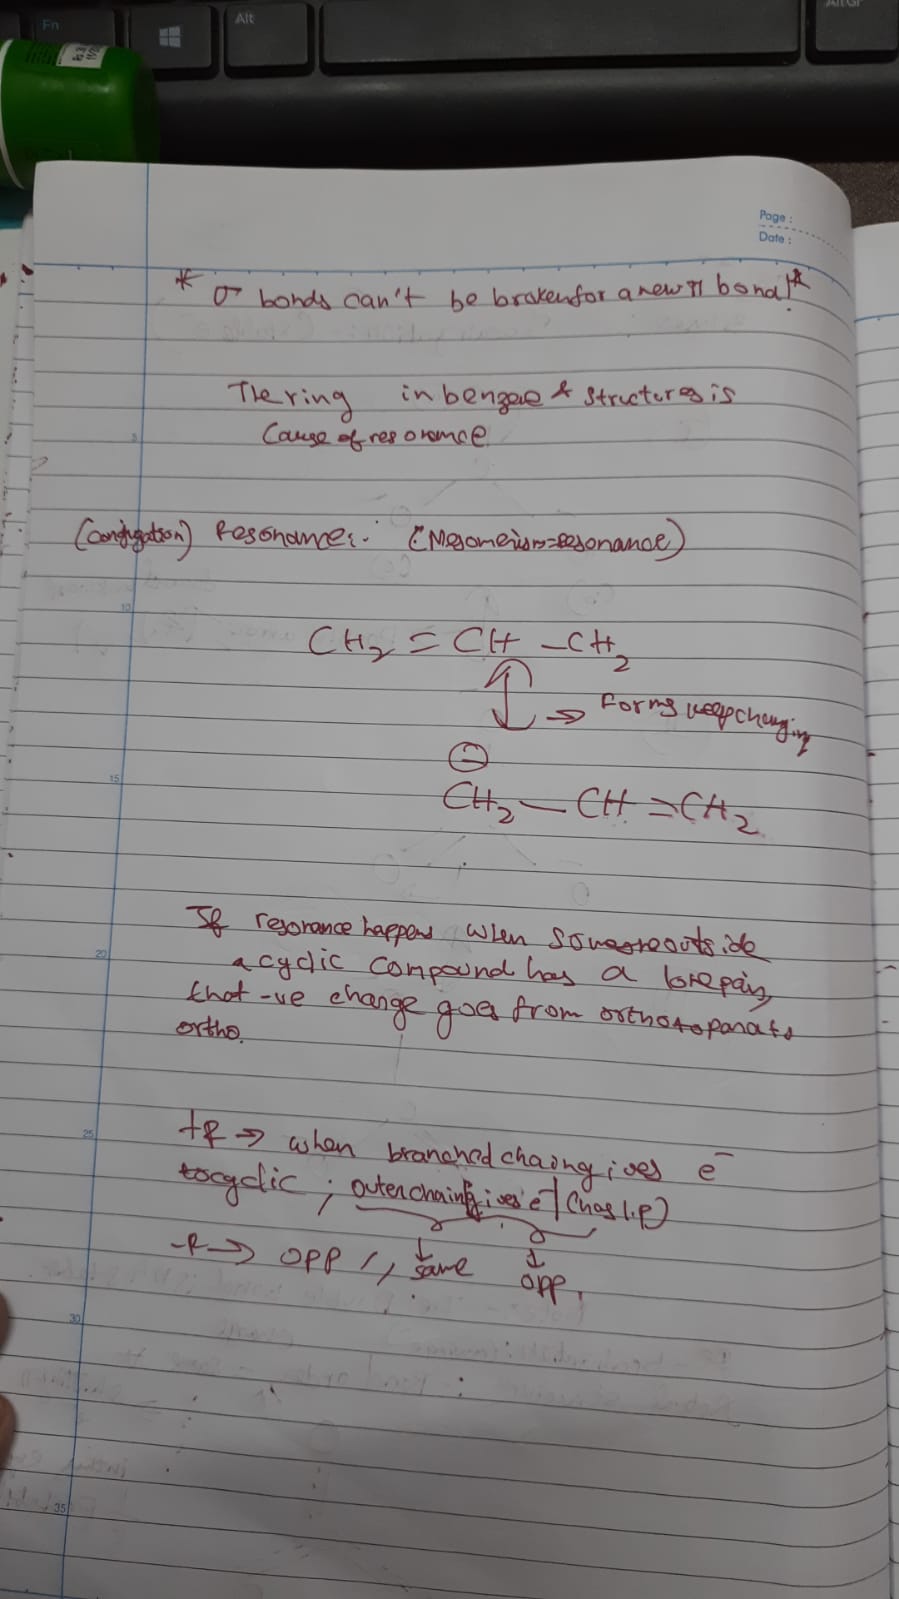 Fn
Alt
AltGr
Page :
Date :
* σ bonds can't be broken for a new π bond! *
The ring in benzene & structures is
Cause of resonance
5
(Conjugation) Resonance:- (Mesomerism=resonance)
10
CH₂ = CH - CH₂
→ Forms keep changing
⊖
15
CH₂ — CH = CH₂
If resonance happens when some outside
20
a cyclic compound has a lone pair,
that -ve change goes from ortho to para to
ortho.
25
+R → when branched chain gives e⁻
to cyclic ; outer chain gives e⁻ / (has l.p)
-R → opp ; same opp.
30
35